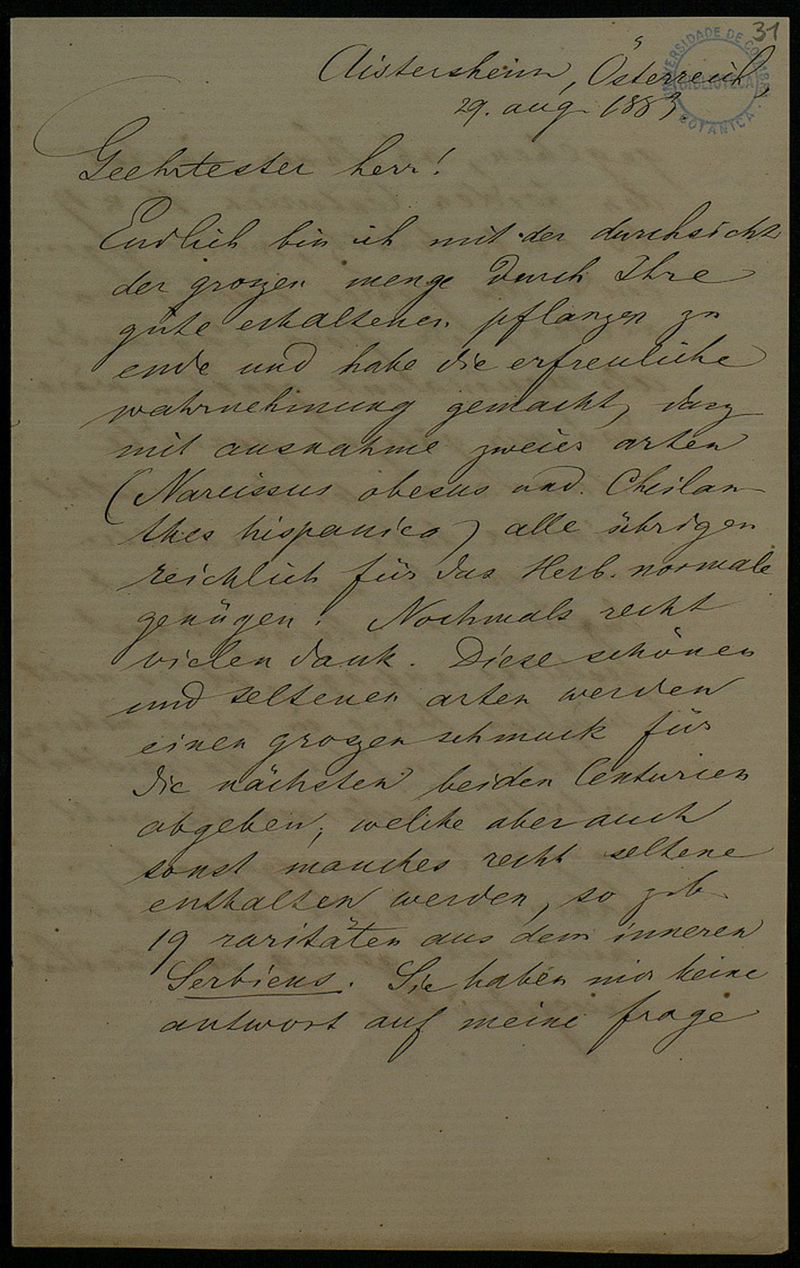 31
UNIVERSIDADE DE COIMBRA
BIBLIOTECA
BOTANICA
Aistersheim, Österreich,
29. aug. 1883.
Geehrtester herr!
Endlich bin ich mit der durchsicht
der groszen menge durch Ihre
güte erhaltenen pflanzen zu
ende und habe die erfreuliche
wahrnehmung gemacht, dasz
mit ausnahme zweier arten
(Narcissus obesus und Cheilan-
thes hispanica) alle übrigen
reichlich für das Herb. normale
genügen. Nochmals recht
vielen dank. Diese schönen
und seltenen arten werden
einen groszen schmuck für
die nächsten beiden Centurien
abgeben, welche aber auch
sonst manches recht seltene
enthalten werden, so z. b.
19 raritäten aus dem inneren
Serbiens. Sie haben mir keine
antwort auf meine frage